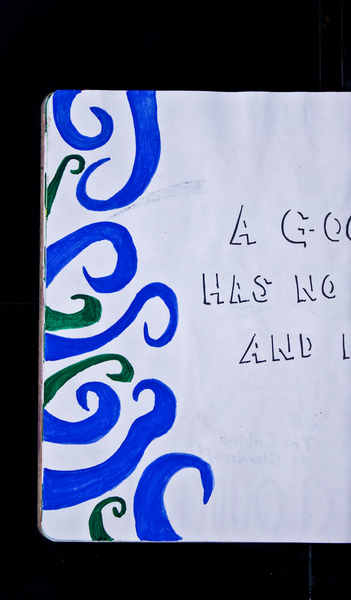 A GOO
HAS NO
AND